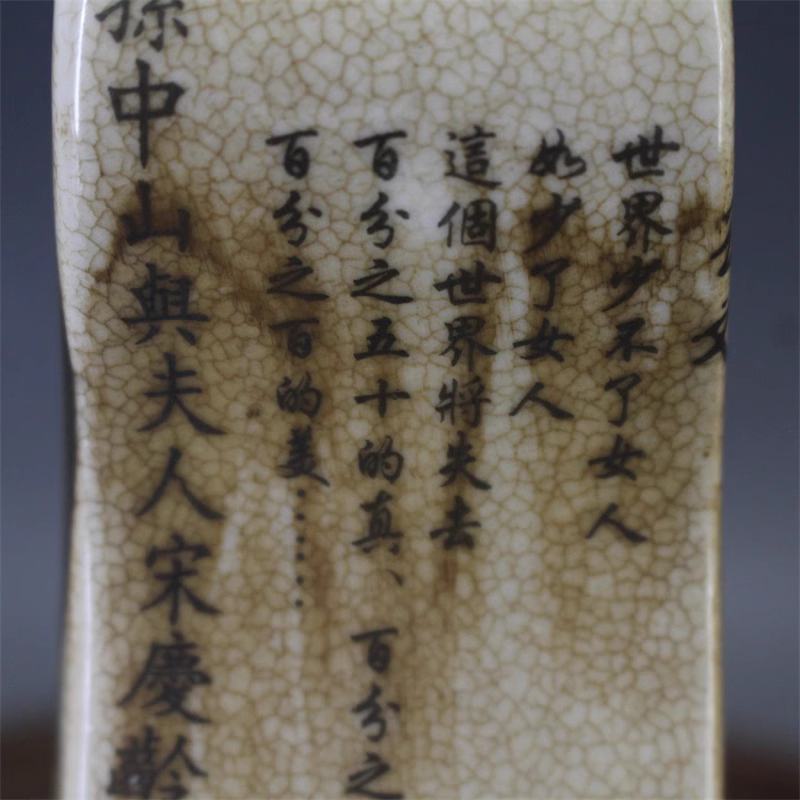 世界少不了女人
如少了女人
這個世界將失去
百分之五十的真、百分之
百分之百的美……
孫中山與夫人宋慶齡